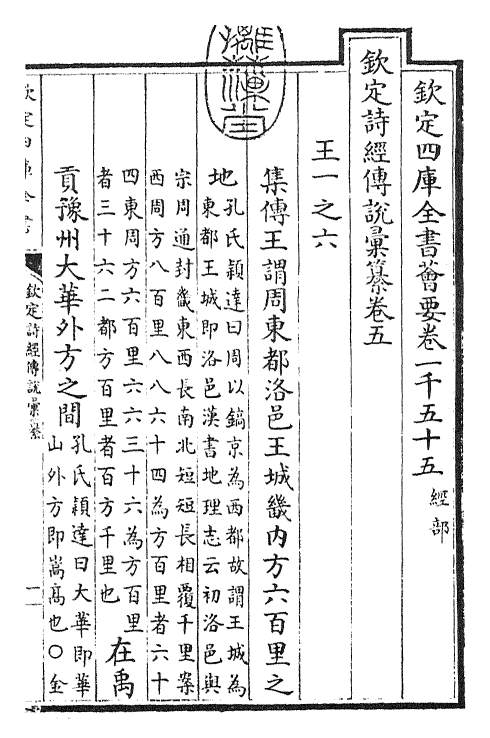 欽定四庫全書薈要卷一千五十五 經部
欽定詩經傳說彙纂卷五
王一之六
集傳王謂周東都洛邑王城畿內方六百里之
地孔氏穎達曰周以鎬京為西都故謂王城為
東都王城即洛邑漢書地理志云初洛邑與
宗周通封畿東西長南北短短長相覆千里案
西周方八百里八八六十四為方百里者六十
四東周方六百里六六三十六為方百里
者三十六二都方百里者百方千里也 在禹
貢豫州大華外方之間孔氏穎達曰大華即華
山外方即嵩高也○金
欽定四庫全書
欽定詩經傳說彙纂
一